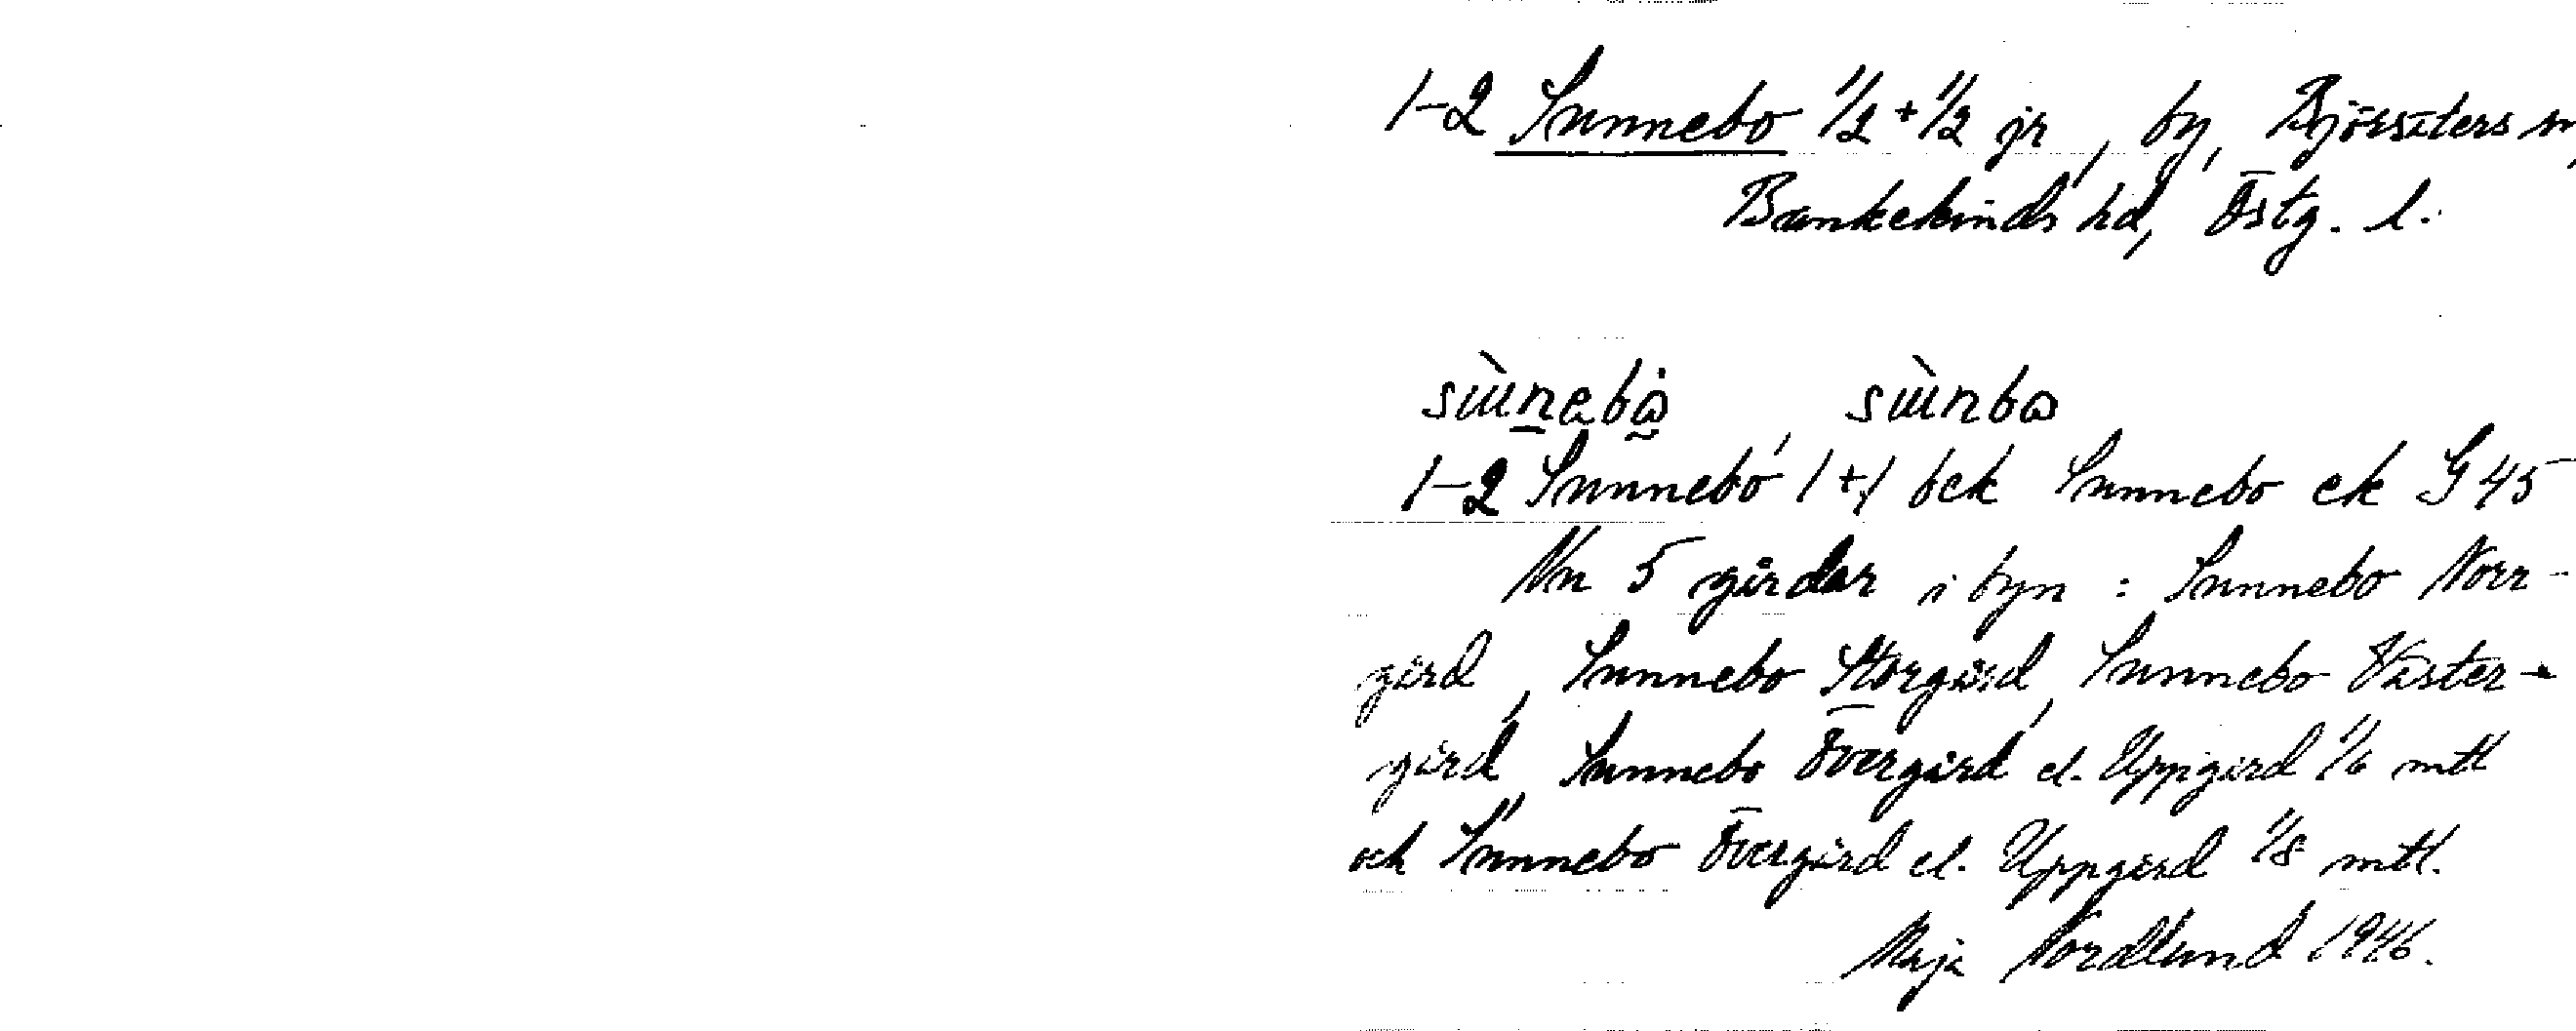 1-2 Sunnebo 1/2 + 1/2 jr, by, Björsäters sn,
Bankekinds hd, Östg. l.
1-2 Sunnebo 1+1 bek Sunnebo ek G 45
Nu 5 gårdar i byn: Sunnebo Norr-
gård, Sunnebo Storgård, Sunnebo Väster-
gård, Sunnebo Övergård el. Uppgård 1/6 mtl
och Sunnebo Övergård el. Uppgård 1/8 mtl.
Maja Nordlund 1946.